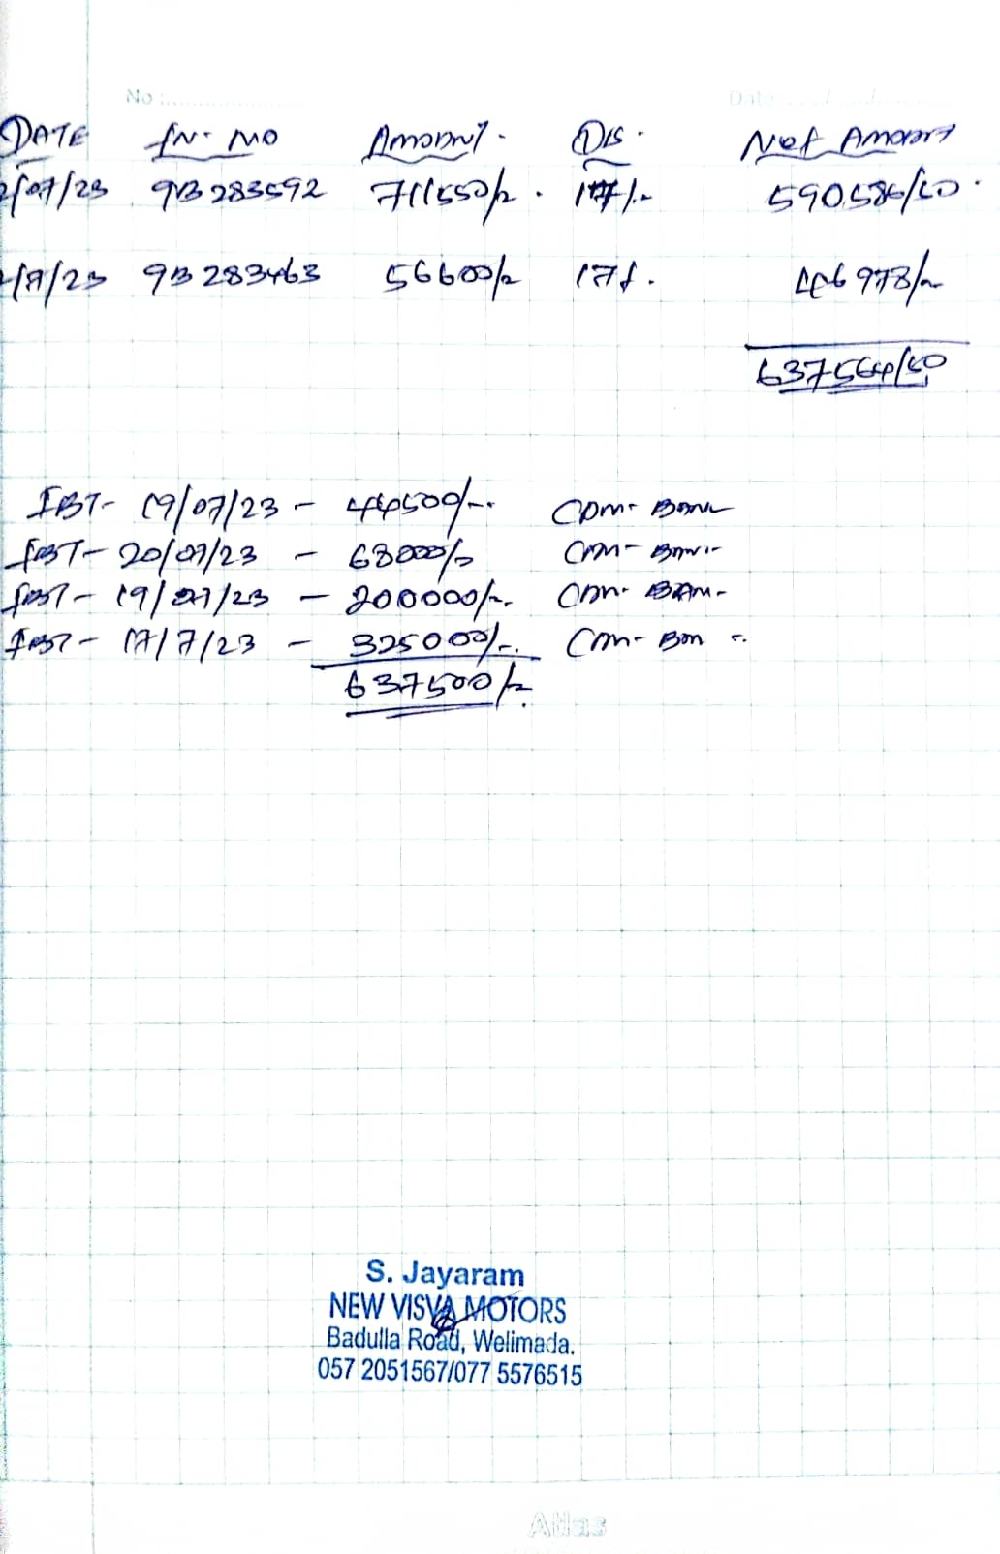 No :
Date
DATE In. No Amount. Dis. Net Amount
/07/23 9B283592 711550/= . 17%. 590,586/50.
/7/23 9B 283463 56600/= 17%. 46978/=
637564/50
IBT- 19/07/23 - 44500/-. Com- Bank
IBT- 20/07/23 - 68000/= Com-
IBT- 19/07/23 - 200000/=. Com-
IBT- 17/7/23 - 325000/-. Com- Ban
637500/=.
S. Jayaram
NEW VISVA MOTORS
Badulla Road, Welimada.
057 2051567/077 5576515
Atlas